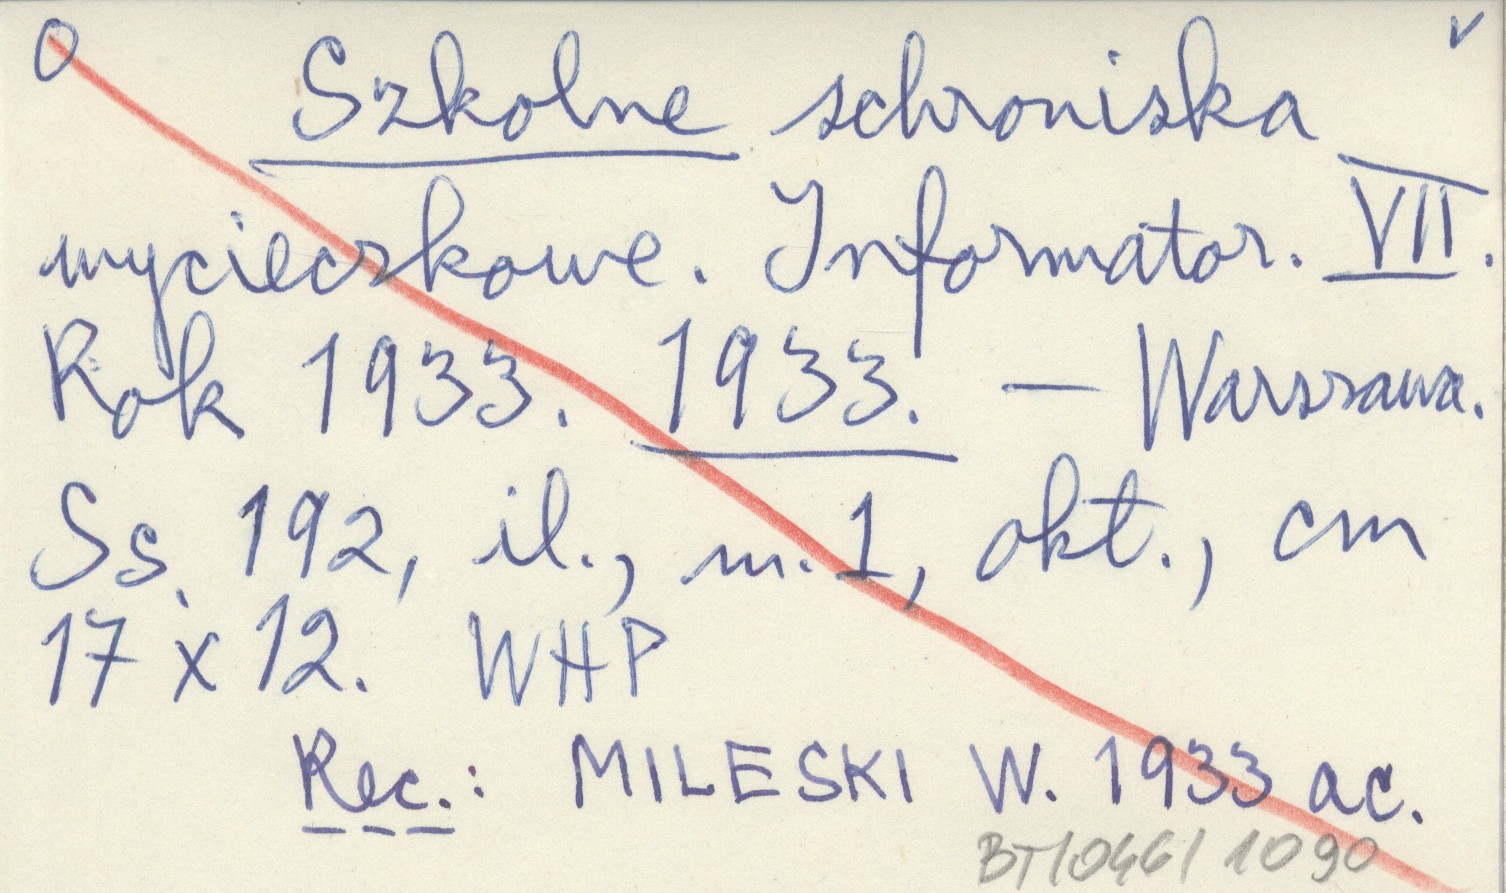 0 Szkolne schroniska v
wycieczkowe. Informator. VII.
Rok 1933. 1933. — Warszawa.
Ss. 192, il., m. 1, okt., cm
17 x 12. WHP
Rec.: MILESKI W. 1933 ac.
BT/046/1090